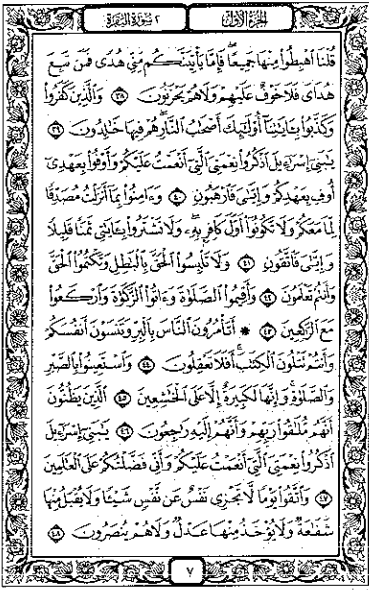 الجزء الأول
٢ سورة البقرة
قُلْنَا ٱهْبِطُوا۟ مِنْهَا جَمِيعًا ۖ فَإِمَّا يَأْتِيَنَّكُم مِّنِّى هُدًى فَمَن تَبِعَ
هُدَاىَ فَلَا خَوْفٌ عَلَيْهِمْ وَلَا هُمْ يَحْزَنُونَ ٣٨ وَٱلَّذِينَ كَفَرُوا۟
وَكَذَّبُوا۟ بِـَٔايَٰتِنَآ أُو۟لَٰٓئِكَ أَصْحَٰبُ ٱلنَّارِ ۖ هُمْ فِيهَا خَٰلِدُونَ ٣٩
يَٰبَنِىٓ إِسْرَٰٓءِيلَ ٱذْكُرُوا۟ نِعْمَتِىَ ٱلَّتِىٓ أَنْعَمْتُ عَلَيْكُمْ وَأَوْفُوا۟ بِعَهْدِىٓ
أُوفِ بِعَهْدِكُمْ وَإِيَّٰىَ فَٱرْهَبُونِ ٤٠ وَءَامِنُوا۟ بِمَآ أَنزَلْتُ مُصَدِّقًا
لِّمَا مَعَكُمْ وَلَا تَكُونُوٓا۟ أَوَّلَ كَافِرٍۭ بِهِۦ ۖ وَلَا تَشْتَرُوا۟ بِـَٔايَٰتِى ثَمَنًا قَلِيلًا
وَإِيَّٰىَ فَٱتَّقُونِ ٤١ وَلَا تَلْبِسُوا۟ ٱلْحَقَّ بِٱلْبَٰطِلِ وَتَكْتُمُوا۟ ٱلْحَقَّ
وَأَنتُمْ تَعْلَمُونَ ٤٢ وَأَقِيمُوا۟ ٱلصَّلَوٰةَ وَءَاتُوا۟ ٱلزَّكَوٰةَ وَٱرْكَعُوا۟
مَعَ ٱلرَّٰكِعِينَ ٤٣ * أَتَأْمُرُونَ ٱلنَّاسَ بِٱلْبِرِّ وَتَنسَوْنَ أَنفُسَكُمْ
وَأَنتُمْ تَتْلُونَ ٱلْكِتَٰبَ ۚ أَفَلَا تَعْقِلُونَ ٤٤ وَٱسْتَعِينُوا۟ بِٱلصَّبْرِ
وَٱلصَّلَوٰةِ ۚ وَإِنَّهَا لَكَبِيرَةٌ إِلَّا عَلَى ٱلْخَٰشِعِينَ ٤٥ ٱلَّذِينَ يَظُنُّونَ
أَنَّهُم مُّلَٰقُوا۟ رَبِّهِمْ وَأَنَّهُمْ إِلَيْهِ رَٰجِعُونَ ٤٦ يَٰبَنِىٓ إِسْرَٰٓءِيلَ
ٱذْكُرُوا۟ نِعْمَتِىَ ٱلَّتِىٓ أَنْعَمْتُ عَلَيْكُمْ وَأَنِّى فَضَّلْتُكُمْ عَلَى ٱلْعَٰلَمِينَ
٤٧ وَٱتَّقُوا۟ يَوْمًا لَّا تَجْزِى نَفْسٌ عَن نَّفْسٍ شَيْـًٔا وَلَا يُقْبَلُ مِنْهَا
شَفَٰعَةٌ وَلَا يُؤْخَذُ مِنْهَا عَدْلٌ وَلَا هُمْ يُنصَرُونَ ٤٨
٧